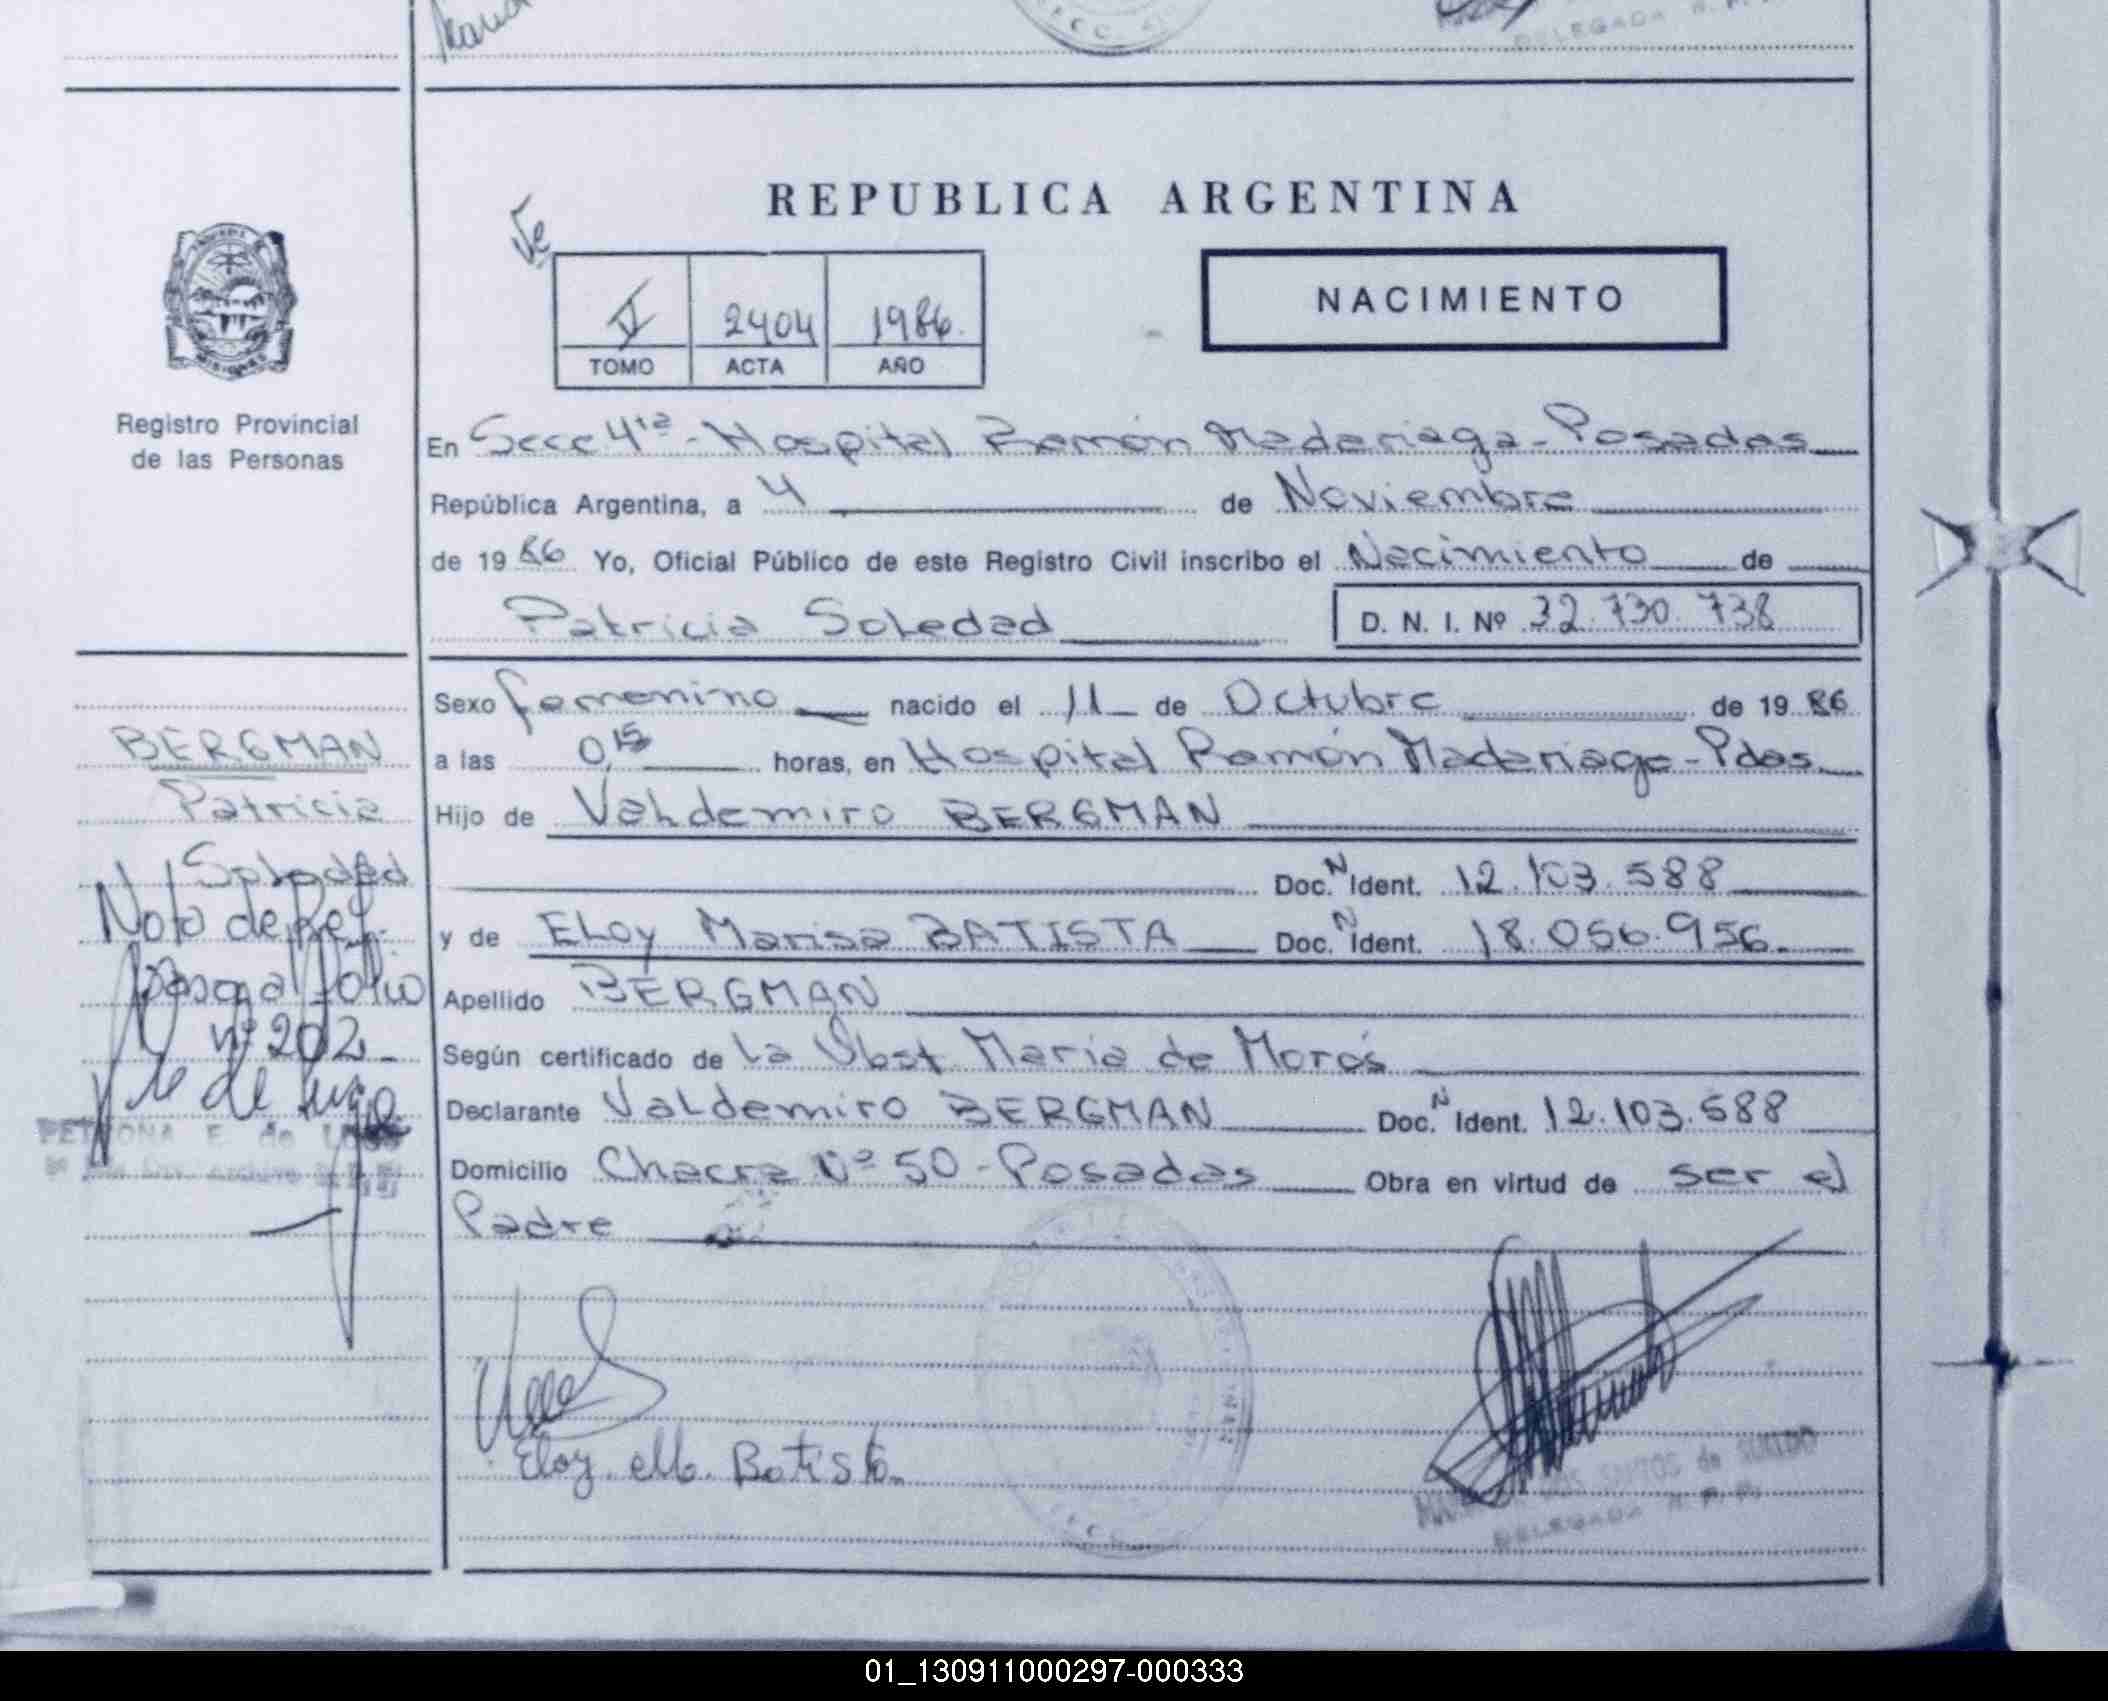 DELEGADA R. P.
REPUBLICA ARGENTINA
V 2404 1986.
TOMO ACTA AÑO
NACIMIENTO
MISIONES
Registro Provincial
de las Personas
En Secc 4ta - Hospital Ramón Madariaga - Posadas
República Argentina, a 4 de Noviembre
de 19 86 Yo, Oficial Público de este Registro Civil inscribo el Nacimiento de
Patricia Soledad D. N. I. Nº 32.730.738
Sexo femenino nacido el 11 de Octubre de 19 86
a las 0,15 horas, en Hospital Ramón Madariaga - Pdas.
Hijo de Valdemiro BERGMAN
Doc. N Ident. 12.103.588
y de Eloy Marisa BATISTA Doc. N Ident. 18.056.956.
Apellido BERGMAN
Según certificado de la Obst María de Morós
Declarante Valdemiro BERGMAN Doc. N Ident. 12.103.588
Domicilio Chacra Nº 50 - Posadas Obra en virtud de ser el
Padre
BERGMAN
Patricia
Soledad
Nota de Ref.
pasa al folio
nº 202
PETRONA E. de LUGO
Eloy M. Batista
DOS SANTOS de SUELDO
DELEGADA R. P. P.
01_130911000297-000333